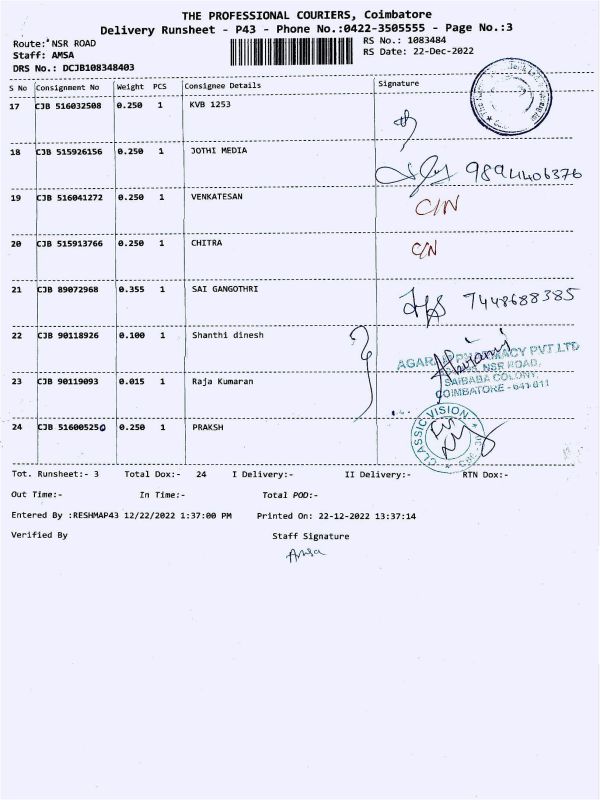 THE PROFESSIONAL COURIERS, Coimbatore
Delivery Runsheet - P43 - Phone No.:0422-3505555 - Page No.:3
Route: NSR ROAD
RS No.: 1083484
Staff: AMSA
RS Date: 22-Dec-2022
DRS No.: DCJB108348403
S No Consignment No Weight PCS Consignee Details Signature
17 CJB 516032508 0.250 1 KVB 1253
18 CJB 515926156 0.250 1 JOTHI MEDIA 9894406376
19 CJB 516041272 0.250 1 VENKATESAN C/N
20 CJB 515913766 0.250 1 CHITRA C/N
21 CJB 89072968 0.355 1 SAI GANGOTHRI 7448688385
22 CJB 90118926 0.100 1 Shanthi dinesh
PHARMACY PVT.LTD
NSR ROAD,
23 CJB 90119093 0.015 1 Raja Kumaran SAIBABA COLONY,
COIMBATORE - 641 011
24 CJB 516005250 0.250 1 PRAKSH CLASSIC VISION
Tot. Runsheet:- 3 Total Dox:- 24 I Delivery:- II Delivery:- RTN Dox:-
Out Time:- In Time:- Total POD:-
Entered By :RESHMAP43 12/22/2022 1:37:00 PM Printed On: 22-12-2022 13:37:14
Verified By Staff Signature
Amsa